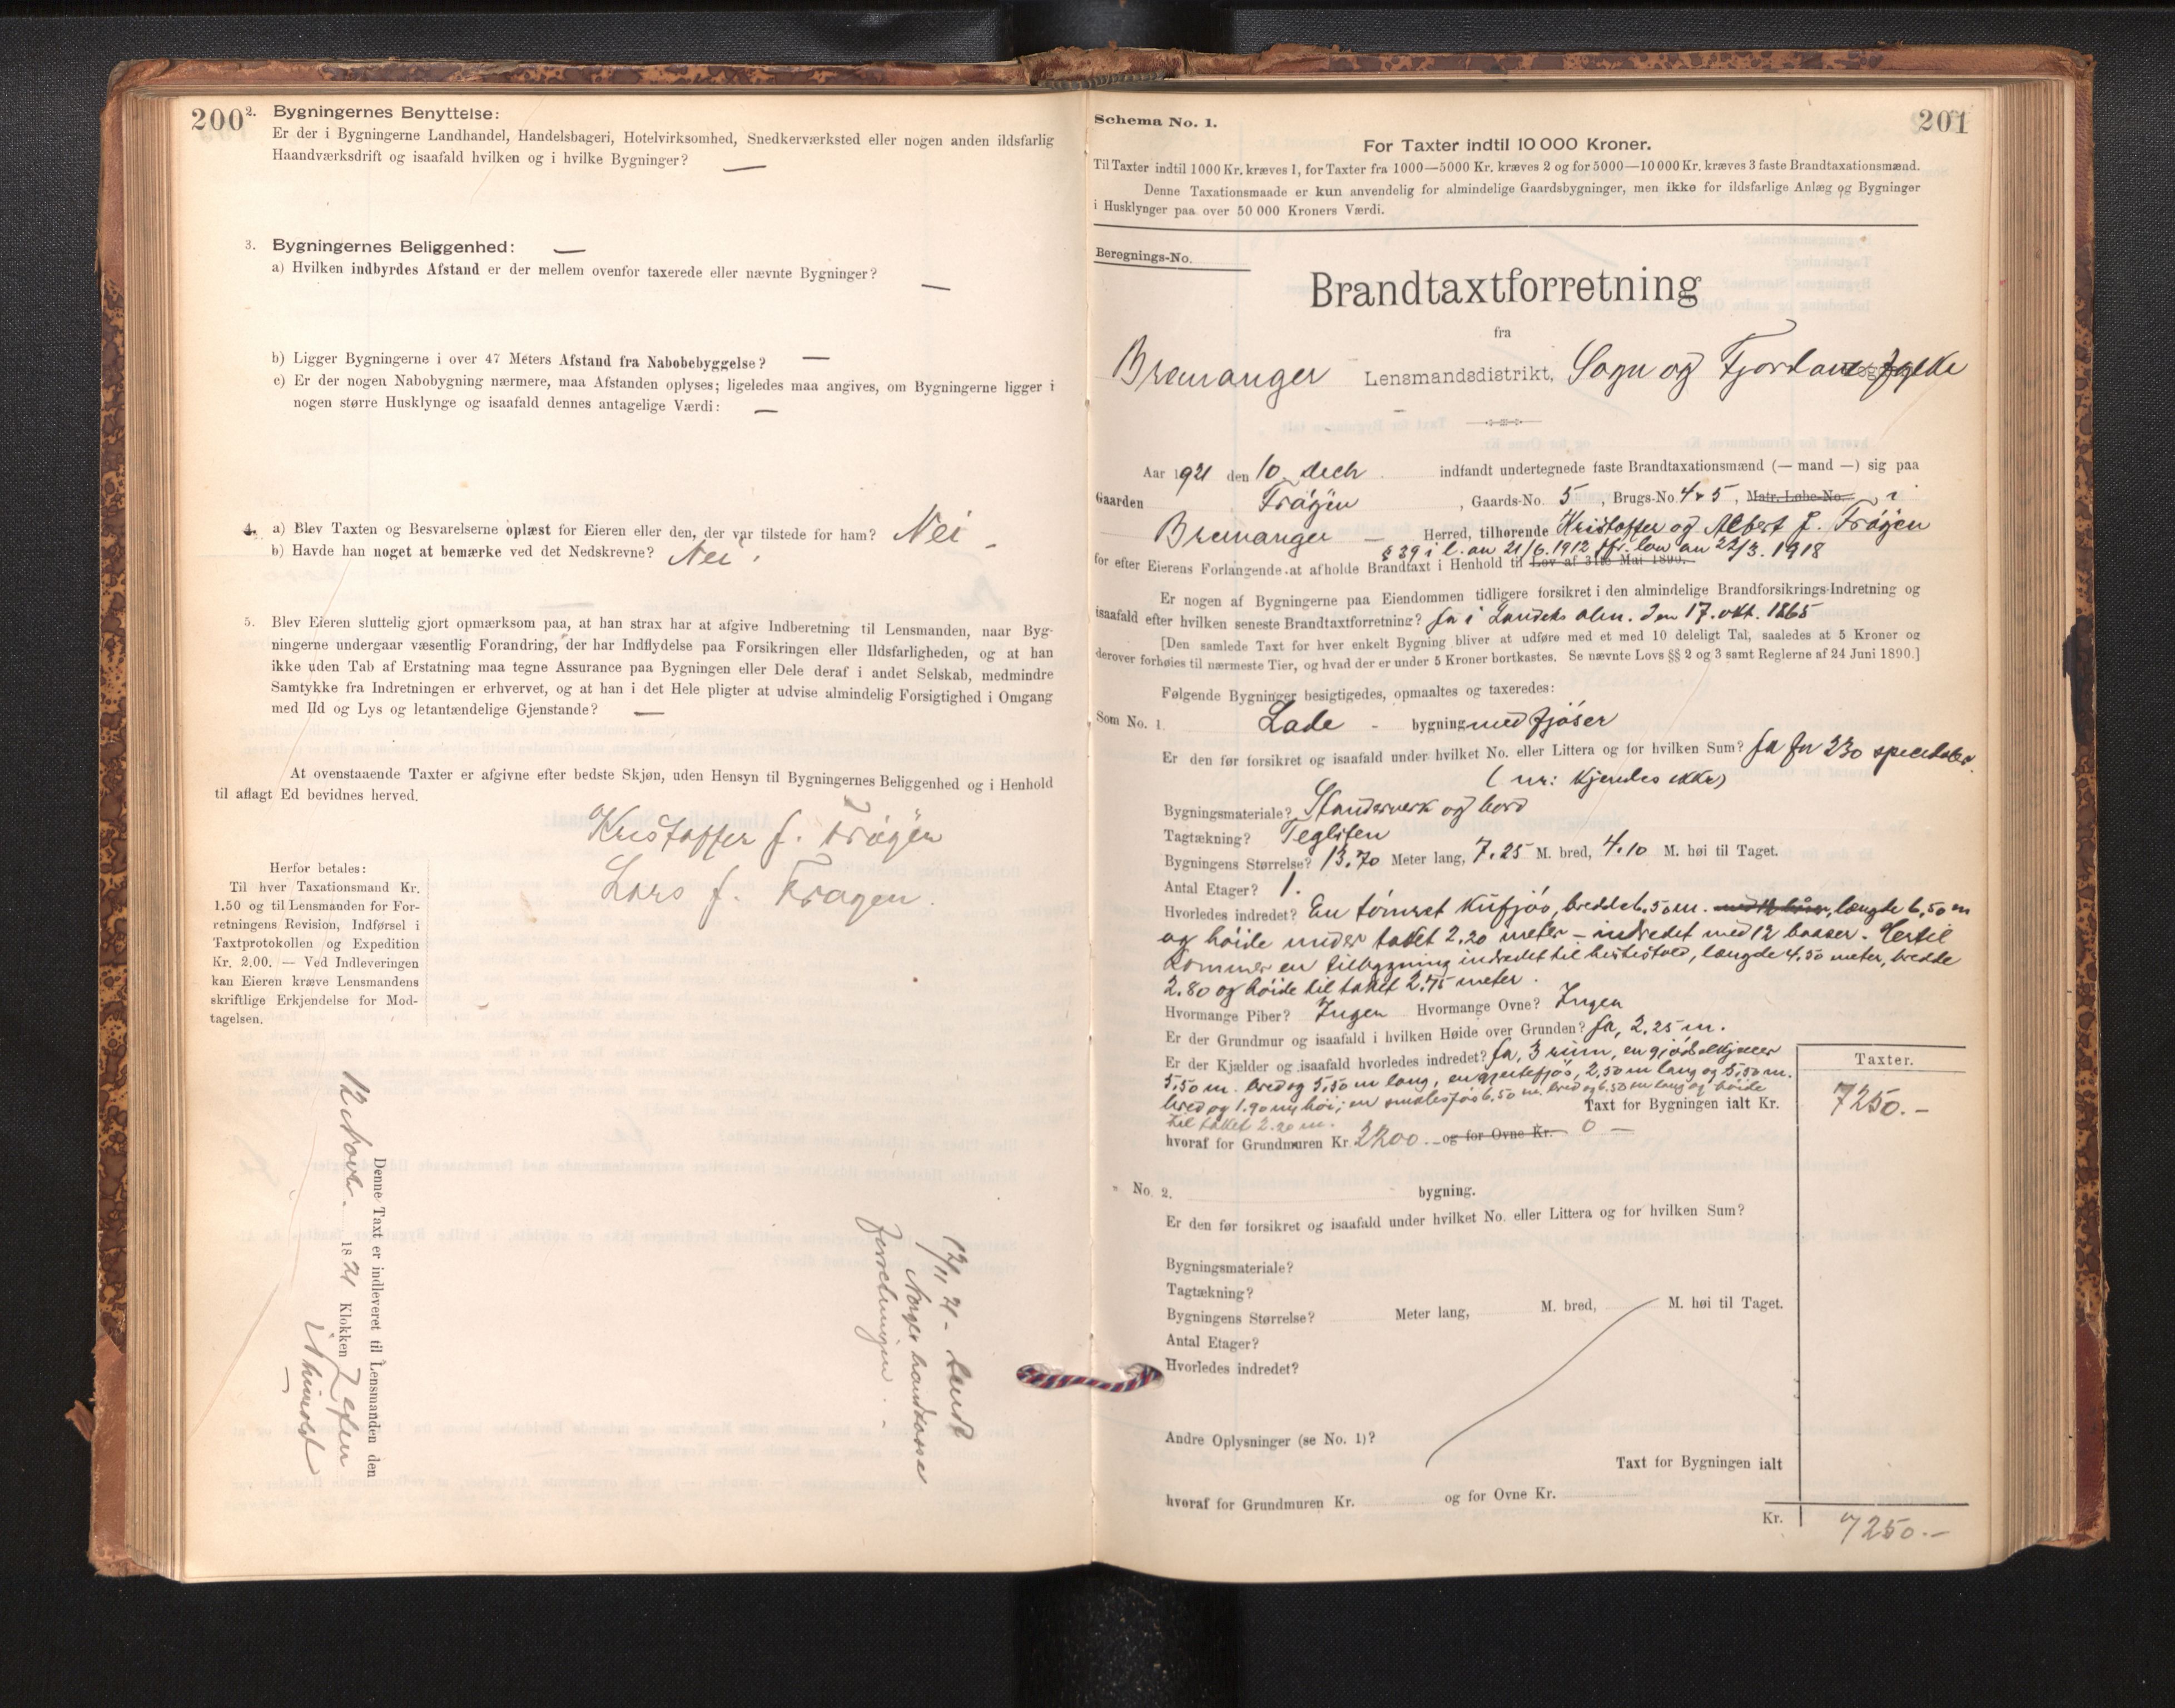 200
2. Bygningernes Benyttelse:
Er der i Bygningerne Landhandel, Handelsbageri, Hotelvirksomhed, Snedkerværksted eller nogen anden ildsfarlig
Haandværksdrift og isaafald hvilken og i hvilke Bygninger? —
3. Bygningernes Beliggenhed: —
a) Hvilken indbyrdes Afstand er der mellem ovenfor taxerede eller nævnte Bygninger? —
b) Ligger Bygningerne i over 47 Meters Afstand fra Nabobebyggelse? —
c) Er der nogen Nabobygning nærmere, maa Afstanden oplyses; ligeledes maa angives, om Bygningerne ligger i
nogen større Husklynge og isaafald dennes antagelige Værdi: —
4. a) Blev Taxten og Besvarelserne oplæst for Eieren eller den, der var tilstede for ham? Nei -
b) Havde han noget at bemærke ved det Nedskrevne? Nei.
5. Blev Eieren sluttelig gjort opmærksom paa, at han strax har at afgive Indberetning til Lensmanden, naar Byg-
ningerne undergaar væsentlig Forandring, der har Indflydelse paa Forsikringen eller Ildsfarligheden, og at han
ikke uden Tab af Erstatning maa tegne Assurance paa Bygningen eller Dele deraf i andet Selskab, medmindre
Samtykke fra Indretningen er erhvervet, og at han i det Hele pligter at udvise almindelig Forsigtighed i Omgang
med Ild og Lys og letantændelige Gjenstande? —
At ovenstaaende Taxter er afgivne efter bedste Skjøn, uden Hensyn til Bygningernes Beliggenhed og i Henhold
til aflagt Ed bevidnes herved.
Kristoffer J. Frøyen
Lars J. Frøyen.
Herfor betales:
Til hver Taxationsmand Kr.
1.50 og til Lensmanden for For-
retningens Revision, Indførsel i
Taxtprotokollen og Expedition
Kr. 2.00. — Ved Indleveringen
kan Eieren kræve Lensmandens
skriftlige Erkjendelse for Mod-
tagelsen.
Denne Taxt er indleveret til Lensmanden den
12 Novbr. 1821 Klokken 2 efter
12/11 21 - Sendt
Norges brandkasse
forretningen. -
201
Schema No. 1.
For Taxter indtil 10 000 Kroner.
Til Taxter indtil 1000 Kr. kræves 1, for Taxter fra 1000—5000 Kr. kræves 2 og for 5000—10 000 Kr. kræves 3 faste Brandtaxationsmænd.
Denne Taxationsmaade er kun anvendelig for almindelige Gaardsbygninger, men ikke for ildsfarlige Anlæg og Bygninger
i Husklynger paa over 50 000 Kroners Værdi.
Beregnings-No.
Brandtaxtforretning
fra
Bremanger Lensmandsdistrikt, Sogn og Fjordane fylke
Aar 1921 den 10 decb indfandt undertegnede faste Brandtaxationsmænd (— mand —) sig paa
Gaarden Frøyen, Gaards-No. 5, Brugs-No. 4 & 5, Matr. Løbe-No. i
Bremanger — Herred, tilhørende Kristoffer og Albert J. Frøyen
§ 39 i l. av 21/6.1912 jfr. lov av 22/3.1918
for efter Eierens Forlangende at afholde Brandtaxt i Henhold til Lov af 31te Mai 1890.
Er nogen af Bygningerne paa Eiendommen tidligere forsikret i den almindelige Brandforsikrings-Indretning og
isaafald efter hvilken seneste Brandtaxtforretning? Ja i Landets alm. den 17. okt. 1865
[Den samlede Taxt for hver enkelt Bygning bliver at udføre med et med 10 deleligt Tal, saaledes at 5 Kroner og
derover forhøies til nærmeste Tier, og hvad der er under 5 Kroner bortkastes. Se nævnte Lovs §§ 2 og 3 samt Reglerne af 24 Juni 1890.]
Følgende Bygninger besigtigedes, opmaaltes og taxeredes:
Som No. 1. Lade - bygning med fjøser
Er den før forsikret og isaafald under hvilket No. eller Littera og for hvilken Sum? Ja for 230 speciedaler.
(nr: kjendes ikke)
Bygningsmateriale? Standerverk og bord
Tagtækning? Teglsten
Bygningens Størrelse? 13.70 Meter lang, 7.25 M. bred, 4.10 M. høi til Taget.
Antal Etager? 1.
Hvorledes indredet? En tømret kufjøs, bredde 6.50 m. med 12 båser, længde 6,50 m
og høide under taket 2.20 meter — indredet med 12 baaser. Hertil
kommer en tilbygning indredet til hestestald, længde 4.50 meter, bredde
2.80 og høide til taket 2.75 meter.
Hvormange Piber? Ingen Hvormange Ovne? Ingen
Er der Grundmur og isaafald i hvilken Høide over Grunden? Ja, 2.25 m.
Er der Kjælder og isaafald hvorledes indredet? Ja, 3 rum, en gjødselkjæller
5,50 m. bred og 5,50 m lang, en gjeitefjøs, 2,50 m lang og 5,50 m.
bred og 1.90 m høi; en smalefjøs 6.50 m. bred og 6.50 m lang og høide
til taket 2.20 m.
Taxter.
Taxt for Bygningen ialt Kr. 7250.-
hvoraf for Grundmuren Kr. 2200.- og for Ovne Kr. 0 —
No. 2. bygning.
Er den før forsikret og isaafald under hvilket No. eller Littera og for hvilken Sum?
Bygningsmateriale?
Tagtækning?
Bygningens Størrelse? Meter lang, M. bred, M. høi til Taget.
Antal Etager?
Hvorledes indredet?
Andre Oplysninger (se No. 1)?
Taxt for Bygningen ialt
hvoraf for Grundmuren Kr. og for Ovne Kr.
Kr. 7250.-